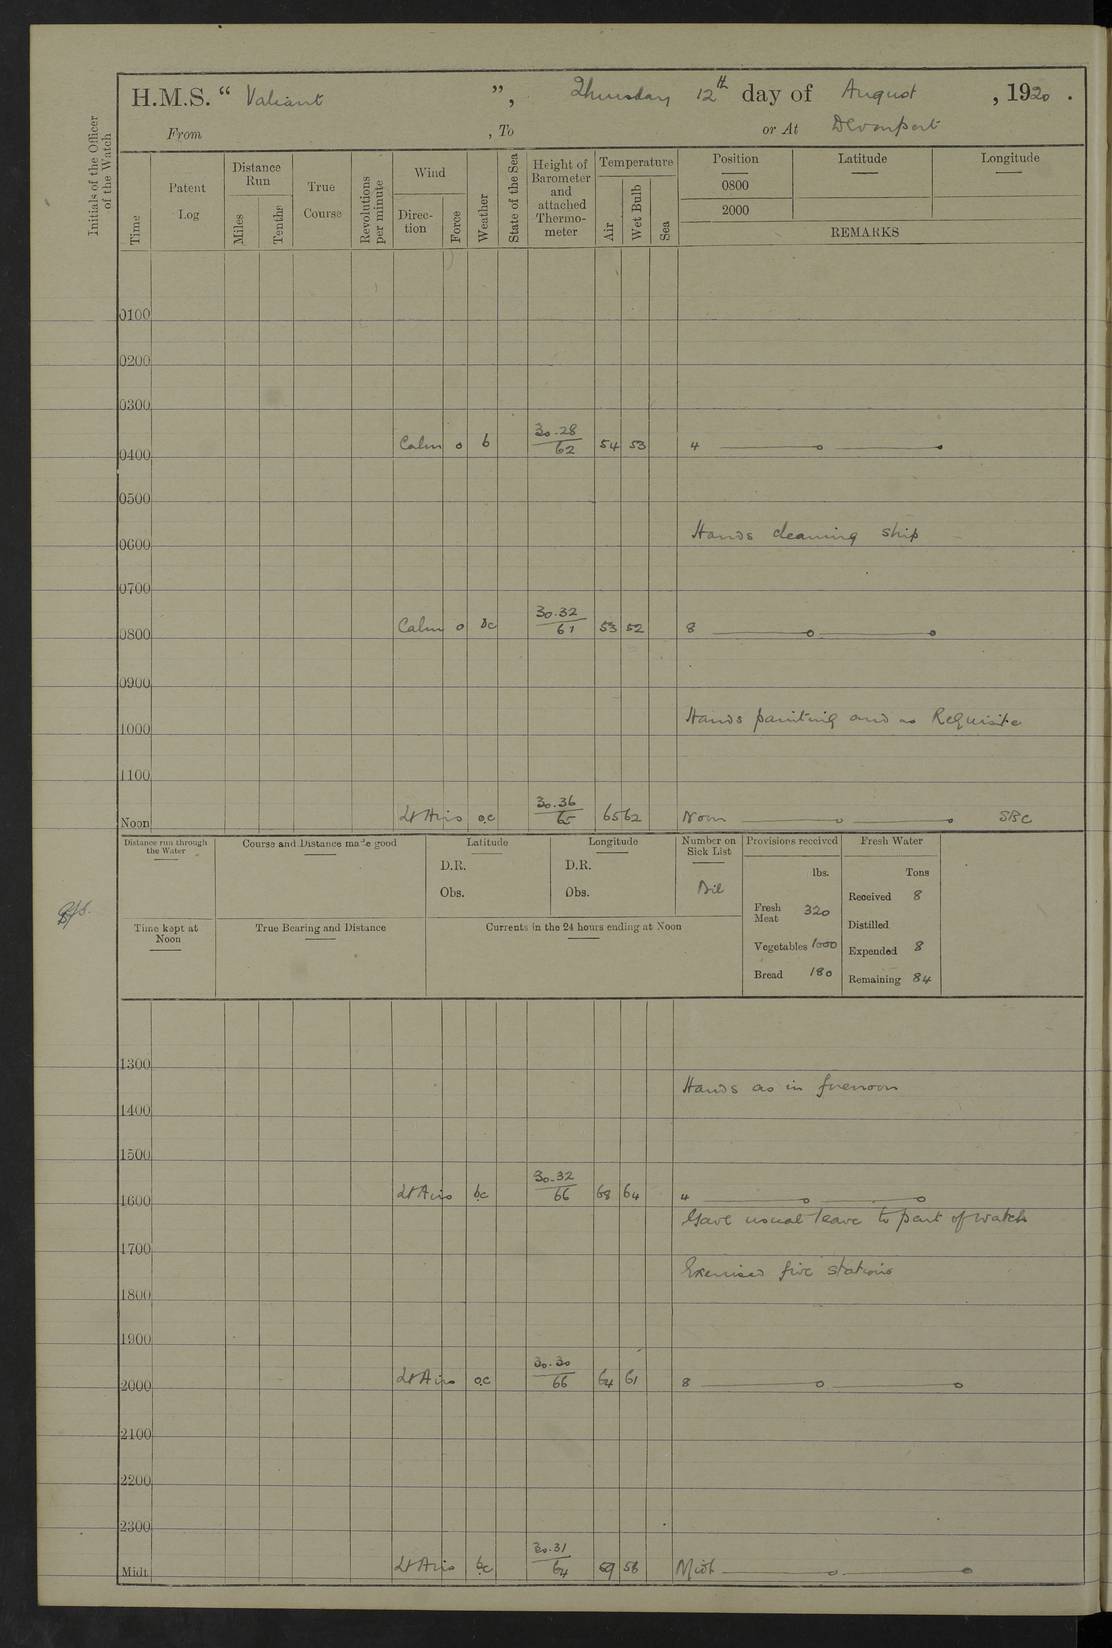 H.M.S. “ Valiant ”, Thursday 12th day of August , 1920 .
From , To or At Devonport
Initials of the Officer of the Watch
Time
Patent Log
Distance Run
Miles
Tenths
True Course
Revolutions per minute
Wind
Direction
Force
Weather
State of the Sea
Height of Barometer and attached Thermometer
Temperature
Air
Wet Bulb
Sea
Position Latitude Longitude
0800
2000
REMARKS
0100
0200
0300
0400 Calm 0 b 30.28 62 54 53 4
0500
0600 Hands cleaning ship
0700
0800 Calm 0 bc 30.32 61 53 52 8
0900
1000 Hands painting and as Requisite
1100
Noon Lt Airs oc 30.36 65 65 62 Noon SBC
Distance run through the Water
Course and Distance made good
Latitude
D.R.
Obs.
Longitude
D.R.
Obs.
Number on Sick List
Provisions received
lbs.
Fresh Meat 320
Vegetables 1000
Bread 180
Fresh Water
Tons
Received 8
Distilled
Expended 8
Remaining 84
Time kept at Noon
True Bearing and Distance
Currents in the 24 hours ending at Noon
1300
Hands as in forenoon
1400
1500
1600 Lt Airs bc 30.32 66 68 64 4
Gave usual leave to part of watch
1700
Exercised fire stations
1800
1900
2000 Lt Airs oc 30.30 66 64 61 8
2100
2200
2300
Midt. Lt Airs bc 30.31 64 58 Midt